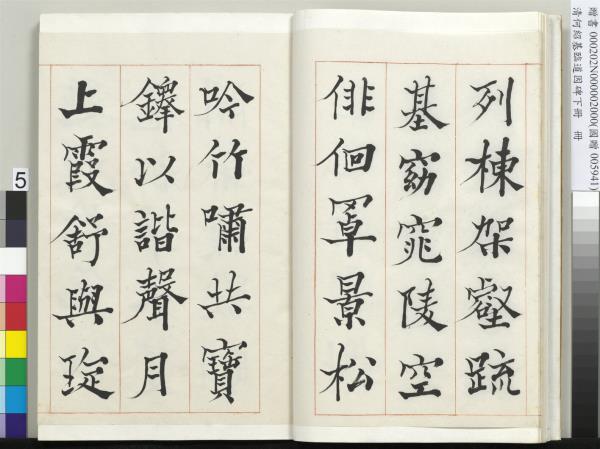 列棟架壑疏
基窈窕陵空
俳佪罩景松
吟竹嘯共寶
鐸以諧聲月
上霞舒與琁
贈書 000202N000002000(國贈 005941)
清何紹基臨道因碑下冊 冊
5